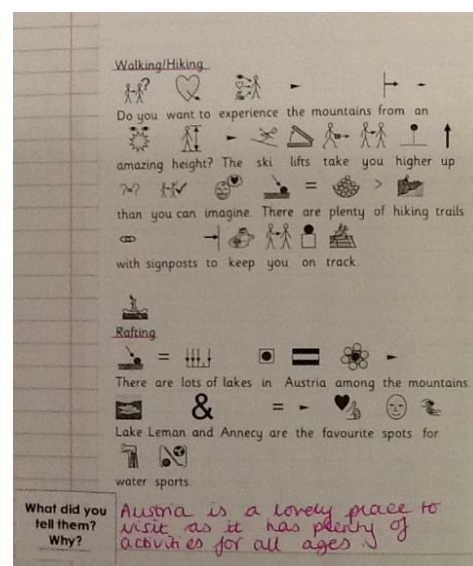 Walking/Hiking
Do you want to experience the mountains from an
amazing height? The ski lifts take you higher up
than you can imagine. There are plenty of hiking trails
with signposts to keep you on track.
Rafting
There are lots of lakes in Austria among the mountains.
&
Lake Leman and Annecy are the favourite spots for
water sports.
What did you
tell them?
Why?
Austria is a lovely place to
visit as it has plenty of
activities for all ages